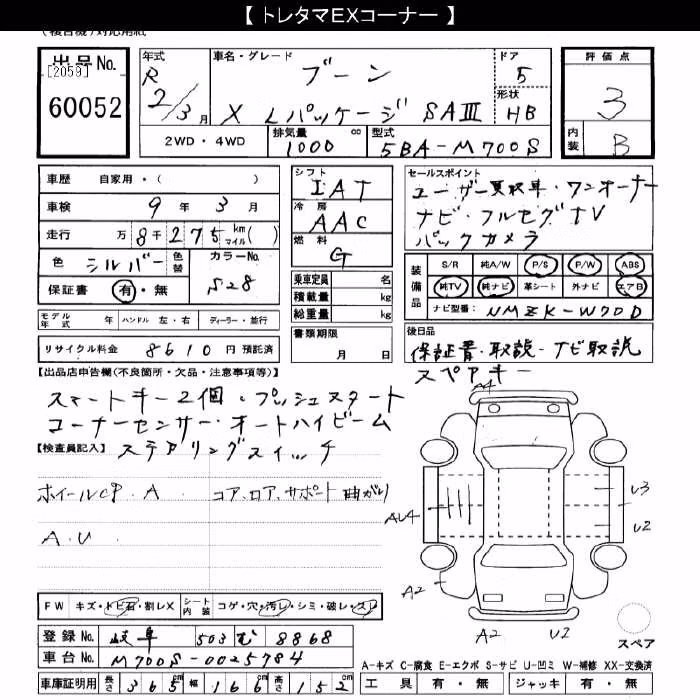 【 トレタマEXコーナー 】
(複合機)対応用紙
出品No. [2059] 60052
年式 R 2/3月
車名・グレード ブーン X Lパッケージ SAⅢ
ドア 5
形状 HB
評価点 3
内装 B
2WD・4WD 排気量 1000 cc 型式 5BA-M700S
車歴 自家用・( )
車検 9年 3月
走行 万 8千 275 km マイル( )
色 シルバー 色替 カラーNo. S28
保証書 有・無
モデル年式 年 ハンドル 左・右 ディーラー・並行
リサイクル料金 8610 円 預託済
シフト IAT
冷房 AAC
燃料 G
乗車定員 名
積載量 kg
総重量 kg
書類期限 月 日
セールスポイント
ユーザー買取車・ワンオーナー
ナビ・フルセグTV
バックカメラ
装備品 S/R 純A/W P/S P/W ABS
純TV 純ナビ 革シート 外ナビ エアB
ナビ型番: NMZK-W70D
後日品
保証書・取説・ナビ取説
スペアキー
【出品店申告欄(不良箇所・欠品・注意事項等)】
スマートキー2個・プッシュスタート
コーナーセンサー・オートハイビーム
ステアリングスイッチ
【検査員記入】
ホイールCP・A コア、ロア、サポート曲がり
A・U
A4
AU4
U3
U2
A2
A2
U2
スペア
FW キズ・トビ石・割レX シート内装 コゲ・穴・汚レ・シミ・破レ・スレ
登録No. 岐阜 503 む 8868
車台No. M700S-0025784
車庫証明用 長さ 365cm 幅 166cm 高さ 152cm
A-キズ C-腐食 E-エクボ S-サビ U-凹ミ W-補修 XX-交換済
工具 有・無 ジャッキ 有・無